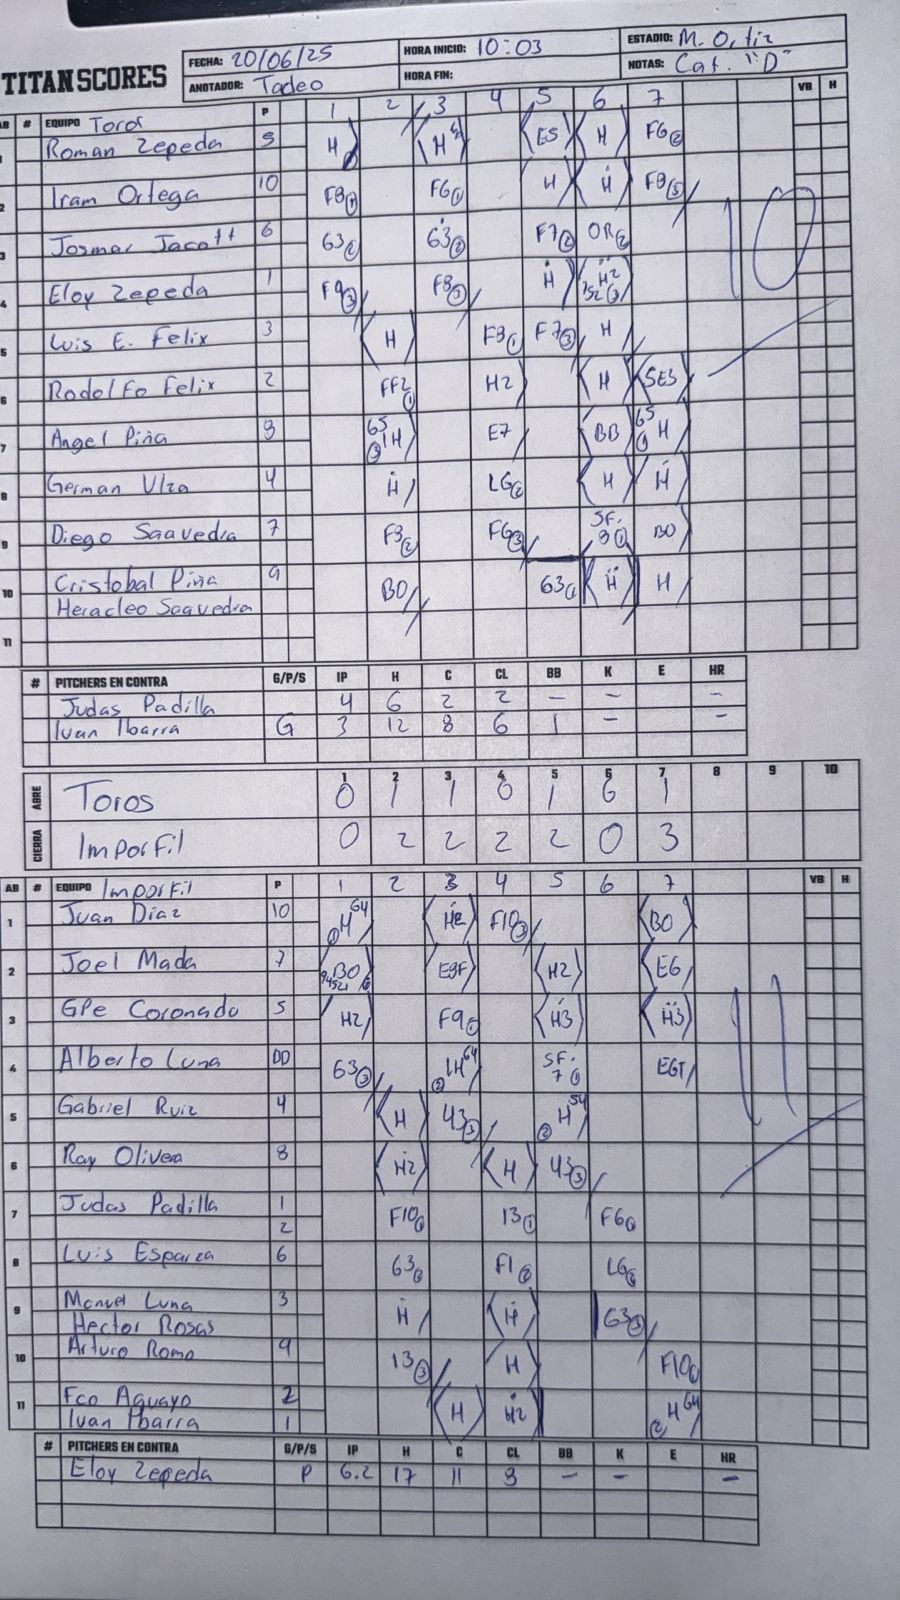 TITAN SCORES
FECHA: 20/06/25 HORA INICIO: 10:03 ESTADIO: M. Ortiz
ANOTADOR: Tadeo HORA FIN: NOTAS: Cat. "D"
AB # EQUIPO Toros P 1 2 3 4 5 6 7 VB H
1 Roman Zepeda 5 H H E5 H F6②
2 Iram Ortega 10 F8① F6① H H F8③
3 Josmar Jacott 6 63② 63② F7② OR②
4 Eloy Zepeda 1 F9③ F8③ H H2
5 Luis E. Felix 3 H F3① F7③ H
6 Rodolfo Felix 2 FF2① H2 H SE5
7 Angel Piña 8 65 ③ 1H E7 BB 65 ① H
8 German Ulza 4 H LG② H H
9 Diego Saavedra 7 F3② F6③ SF. 8① BO
10 Cristobal Piña 9 BO 63① H H
Heracleo Saavedra
11
10
# PITCHERS EN CONTRA G/P/S IP H C CL BB K E HR
Judas Padilla 4 6 2 2 – – –
Ivan Ibarra G 3 12 8 6 1 – –
1 2 3 4 5 6 7 8 9 10
ABRE Toros 0 1 1 0 1 6 1
CIERRA Imporfil 0 2 2 2 2 0 3
AB # EQUIPO Imporfil P 1 2 3 4 5 6 7 VB H
1 Juan Diaz 10 ① H 64 H2 F10③ BO
2 Joel Mada 7 BO E9F H2 E6
3 GPe Coronado 5 H2 F9① H3 H3
4 Alberto Luna DD 63③ ② 1H 64 SF. 7① E6T
5 Gabriel Ruiz 4 H 43③ ② H 54
6 Ray Olivera 8 H2 H 43③
7 Judas Padilla 1 2 F10① 13① F6①
8 Luis Esparza 6 63② F1② LG②
9 Manuel Luna 3 H H 63③
Hector Rosas
10 Arturo Romo 9 13③ H F10①
11 Fco Aguayo 2 H H2 ② H 64
Ivan Ibarra 1
11
# PITCHERS EN CONTRA G/P/S IP H C CL BB K E HR
Eloy Zepeda P 6.2 17 11 8 – – –